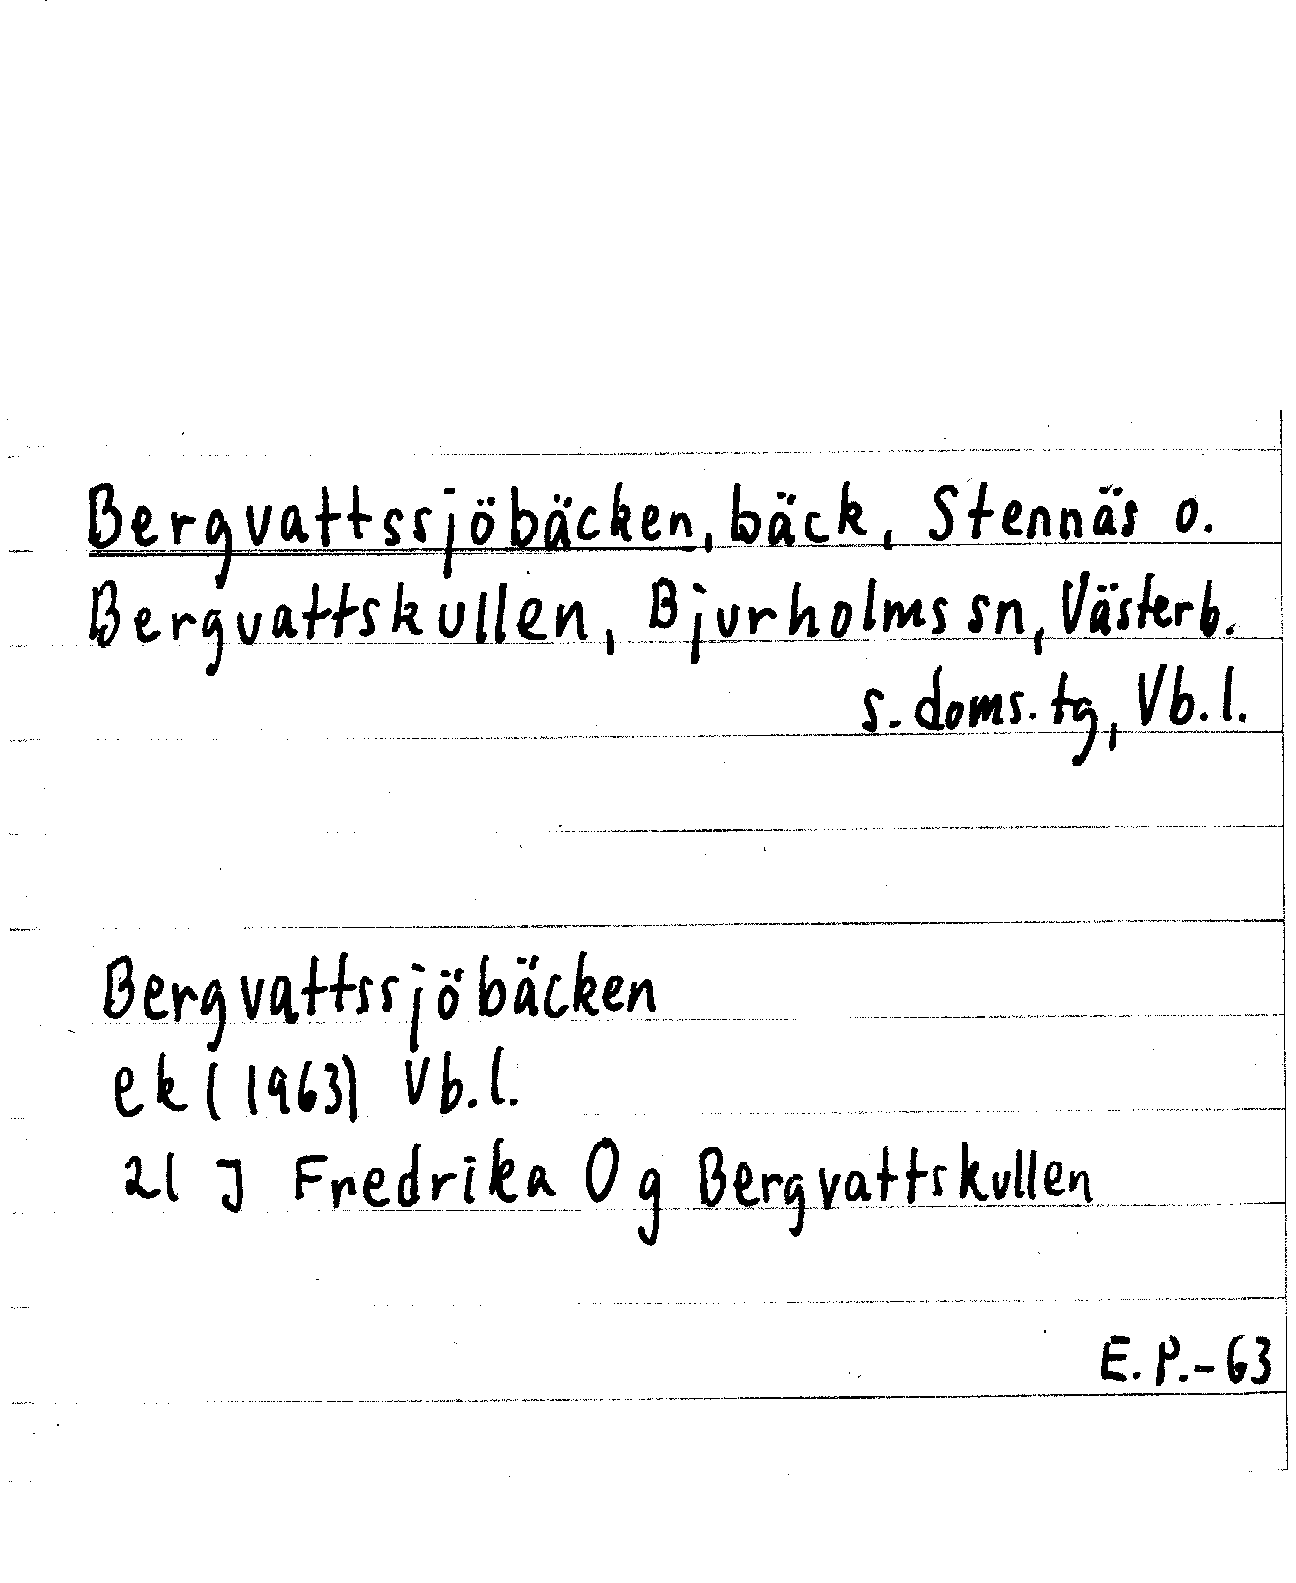 Bergvattssjöbäcken, bäck, Stennäs o.
Bergvattskullen, Bjurholms sn, Västerb.
s. doms. tg, Vb. l.
Bergvattssjöbäcken
ek (1963) Vb. l.
21 J Fredrika O g Bergvattskullen
E. P. - 63